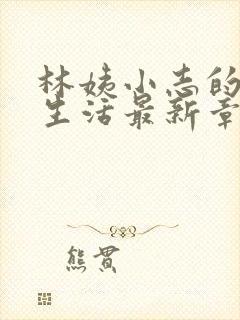 林姨小志的
生活最新章
熊贯